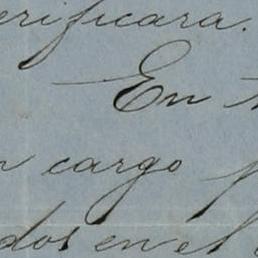 erificara.
En
cargo
dos en el